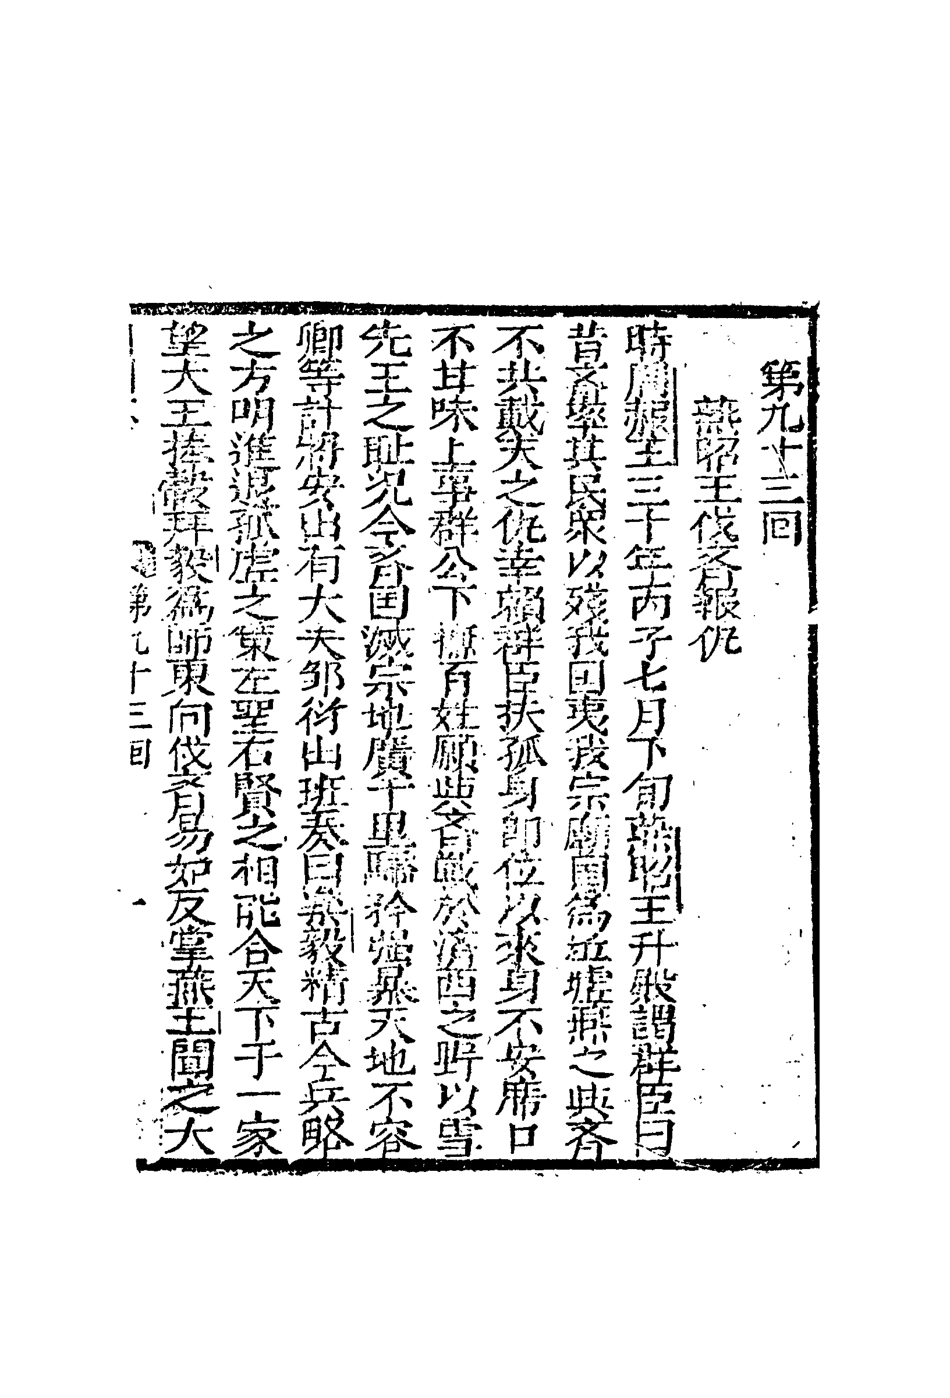 第九十三回
燕昭王伐齊報仇
時周赧王三十年丙子七月下旬燕昭王升殿謂群臣曰
昔齊率其民衆以殘我囯夷我宗廟囯為丘墟燕之與齊
不共戴天之仇幸賴群臣扶孤身即位以來身不安席口
不甘味上事群公下撫百姓願與齊戰於濟西之野以雪
先王之耻况今齊囯滅宗地廣千里驕矜强暴天地不容
卿等計將安出有大夫邹衍出班奏曰樂毅精古今兵略
之方明進退孤虛之策左聖右賢之相能合天下于一家
望大王捧轂拜毅為師東向伐齊易如反掌燕王聞之大
第九十三回
一